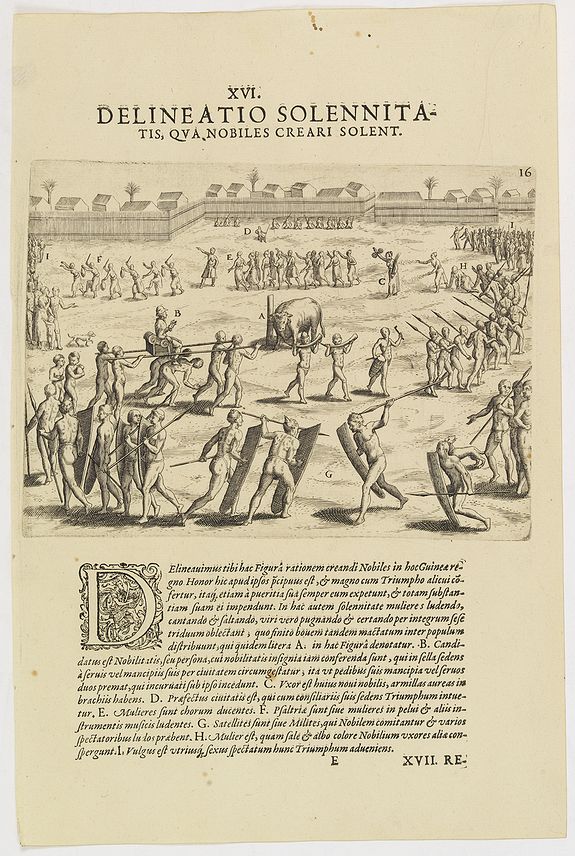 XVI.
DELINEATIO SOLENNITA-
TIS, QVA NOBILES CREARI SOLENT.
16
D
I
I
F
E
H
C
B
A
G
DElineauimus tibi hac Figurâ rationem creandi Nobiles in hoc Guineæ re-
gno Honor hic apud ipsos p̄cipuus est, & magno cum Triumpho alicui cō-
fertur, itaq; etiam à pueritia sua semper eum expetunt, & totam substan-
tiam suam ei impendunt. In hac autem solennitate mulieres ludendo,
cantando & saltando, viri vero pugnando & certando per integrum sese
triduum oblectant; quo finito bouem tandem mactatum inter populum
distribuunt, qui quidem litera A. in hac Figurâ denotatur. B. Candi-
datus est Nobilitatis, seu persona, cui nobilitatis insignia iam conferenda sunt, qui in sella sedens
à seruis vel mancipiis suis per ciuitatem circumgestatur; ita vt pedibus suis mancipia vel seruos
duos premat, qui incuruati sub ipso incedunt. C. Vxor est huius noui nobilis, armillas aureas in
brachiis habens. D. Præfectus ciuitatis est, qui cum consiliariis suis sedens Triumphum intue-
tur. E. Mulieres sunt chorum ducentes. F. Psaltriæ sunt siue mulieres in pelui & aliis in-
strumentis musicis ludentes. G. Satellites sunt siue Milites, qui Nobilem comitantur & varios
spectatoribus ludos præbent. H. Mulier est, quam sale & albo colore Nobilium vxores aliæ con-
spergunt. I. Vulgus est vtriusq; sexus spectatum hunc Triumphum adueniens.
E XVII. RE-